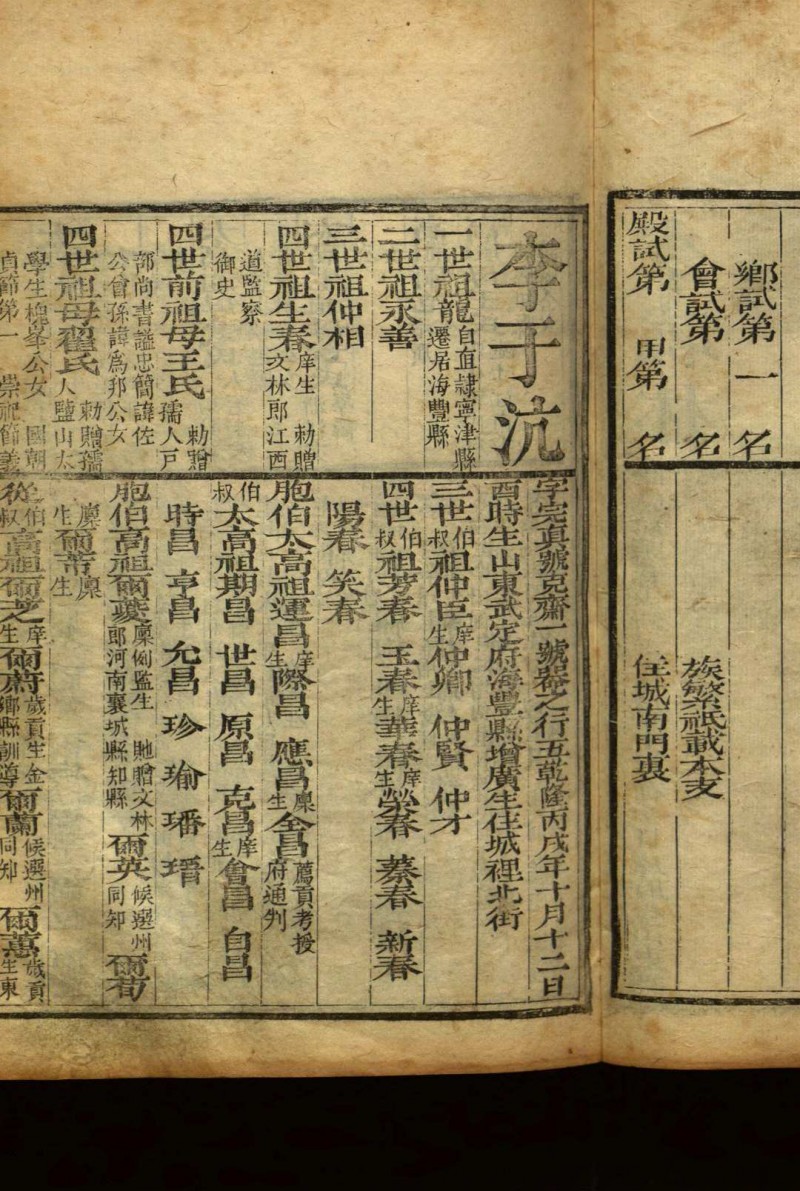 鄉試第一名
會試第 名
殿試第 甲第 名
族繁祗載本支
住城南門裏
李于沆
一世祖龍自直隸寧津縣遷居海豐縣
二世祖永善
三世祖仲相
四世祖生春庠生 勅贈文林郎江西
道監察御史
四世前祖母王氏 勅贈孺人戶
部尚書謚忠簡諱佐公曾孫諱為邦公女
四世祖母翟氏 勅贈孺人鹽山太
學生 公女 國朝貞節第一 崇祀節義
字完真號克齋一號卷之行五乾隆丙戌年十月十二日
酉時生山東武定府海豐縣增廣生住城裡北街
三世伯叔祖仲臣庠生仲卿 仲賢 仲才
四世伯叔祖芳春 玉春庠生華春庠生榮春 蓁春 新春
陽春 笑春
胞伯太高祖運昌庠生際昌 應昌廩生金昌薦貢考授府通判
伯叔太高祖期昌 世昌 原昌 克昌庠生會昌 自昌
時昌 亨昌 允昌 珍 瑜 璠 瑨
胞伯高祖爾 廩例監生 貤贈文林郎河南襄城縣知縣爾英候選州同知爾荀
廩生爾 廩生
從伯叔高祖爾芝庠生爾蔚歲貢生金鄉縣訓導爾蘭候選州同知爾蕙歲貢生東